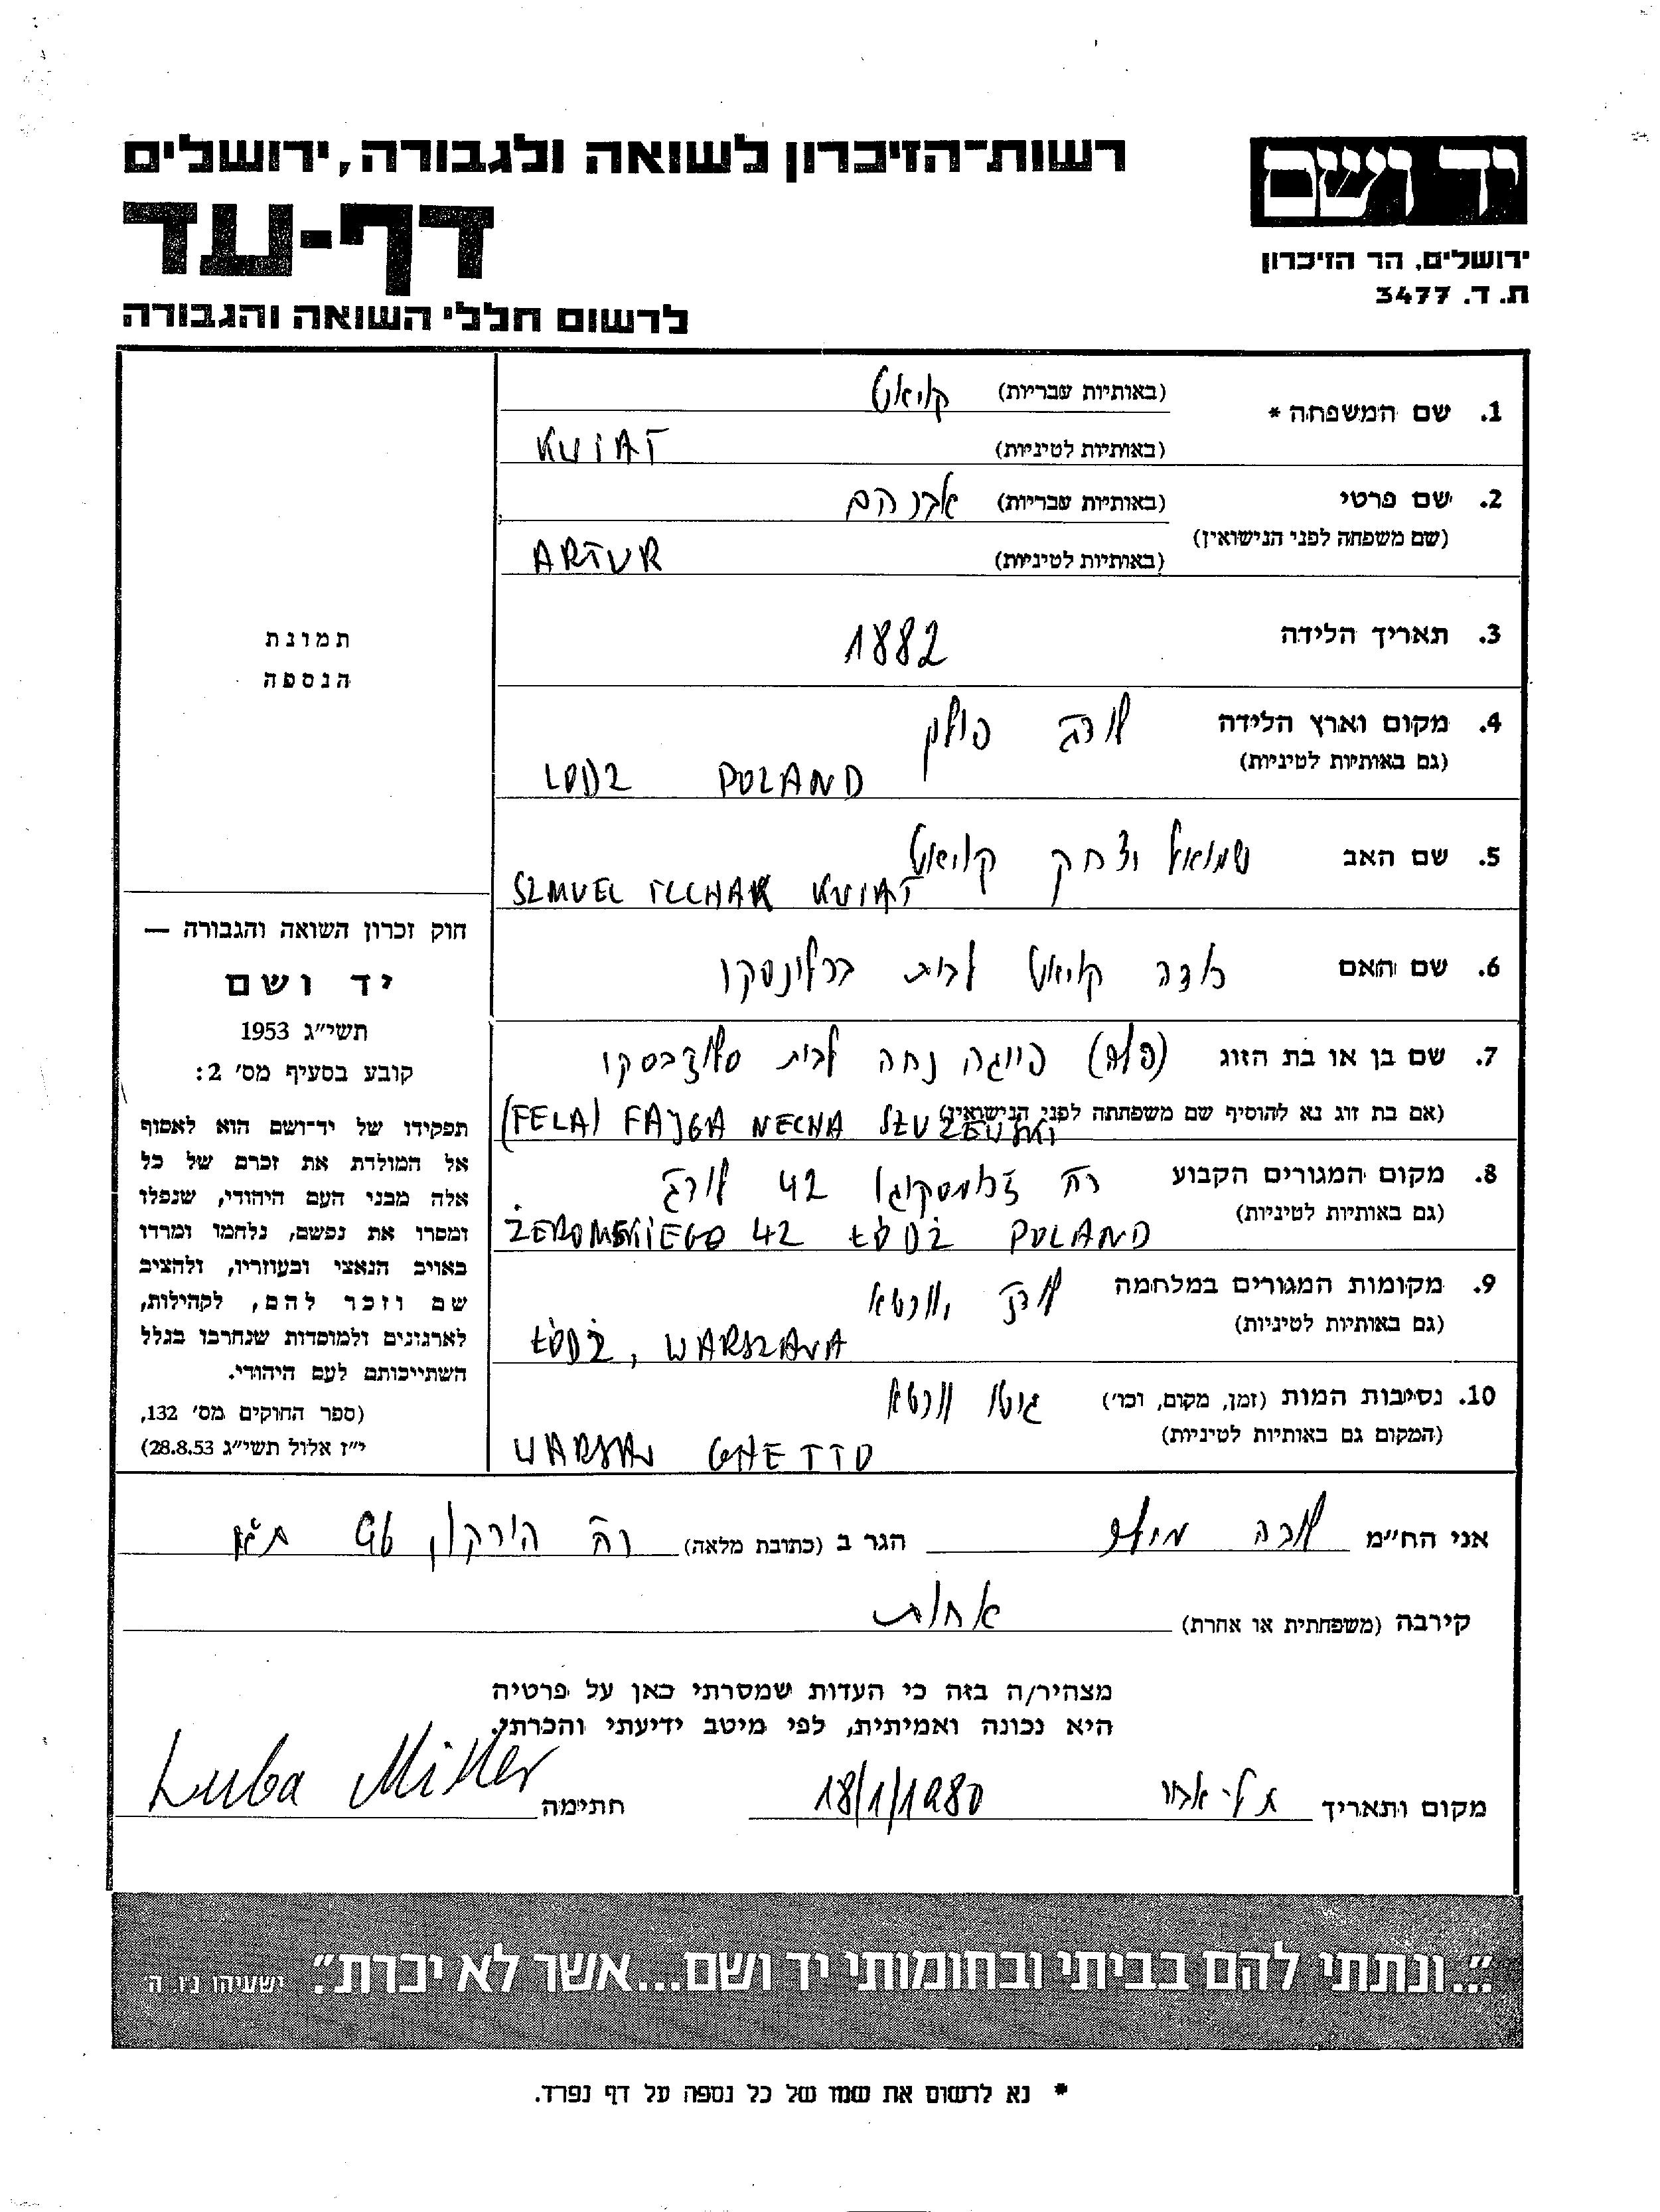 יד ושם
ירושלים, הר הזיכרון
ת. ד. 3477
רשות־הזיכרון לשואה ולגבורה, ירושלים
דף-עד
לרשום חללי השואה והגבורה
1. שם המשפחה * (באותיות עבריות) קויאט
(באותיות לטיניות) KUIAT
2. שם פרטי (באותיות עבריות) אברהם
(שם משפחה לפני הנישואין)
(באותיות לטיניות) ARTUR
3. תאריך הלידה 1882
4. מקום וארץ הלידה לודג פולין
(גם באותיות לטיניות)
LODZ POLAND
5. שם האב שמואל יצחק קויאט
SZMUEL ICCHAK KUIAT
6. שם האם קויאט לבית ברלינסקי
7. שם בן או בת הזוג (פלה) פייגה נחה לבית
(אם בת זוג נא להוסיף שם משפחתה לפני הנישואין)
(FELA) FAJGA NECHA
8. מקום המגורים הקבוע רח' 42 לודג
(גם באותיות לטיניות)
ŻEROMSKIEGO 42 ŁÓDŹ POLAND
9. מקומות המגורים במלחמה לודג, וורשא
(גם באותיות לטיניות)
ŁÓDŹ, WARSZAWA
10. נסיבות המות (זמן, מקום, וכו') גיטו וורשא
(המקום גם באותיות לטיניות)
WARSAW GHETTO
תמונת
הנספה
חוק זכרון השואה והגבורה —
יד ושם
תשי״ג 1953
קובע בסעיף מס' 2:
תפקידו של יד־ושם הוא לאסוף
אל המולדת את זכרם של כל
אלה מבני העם היהודי, שנפלו
ומסרו את נפשם, נלחמו ומרדו
באויב הנאצי ובעוזריו, ולהציב
שם וזכר להם, לקהילות,
לארגונים ולמוסדות שנחרבו בגלל
השתייכותם לעם היהודי.
(ספר החוקים מס' 132,
י״ז אלול תשי״ג 28.8.53)
אני הח״מ לובה מילר הגר ב (כתובת מלאה) רח' הירקון 96 ת״א
קירבה (משפחתית או אחרת) אחות
מצהיר/ה בזה כי העדות שמסרתי כאן על פרטיה
היא נכונה ואמיתית, לפי מיטב ידיעתי והכרתי.
מקום ותאריך תל-אביב 18/1/1980 חתימה Luba Miller
״...ונתתי להם בביתי ובחומותי יד ושם...אשר לא יכרת״. ישעיהו נ״ו ה'
* נא לרשום את שמו של כל נספה על דף נפרד.